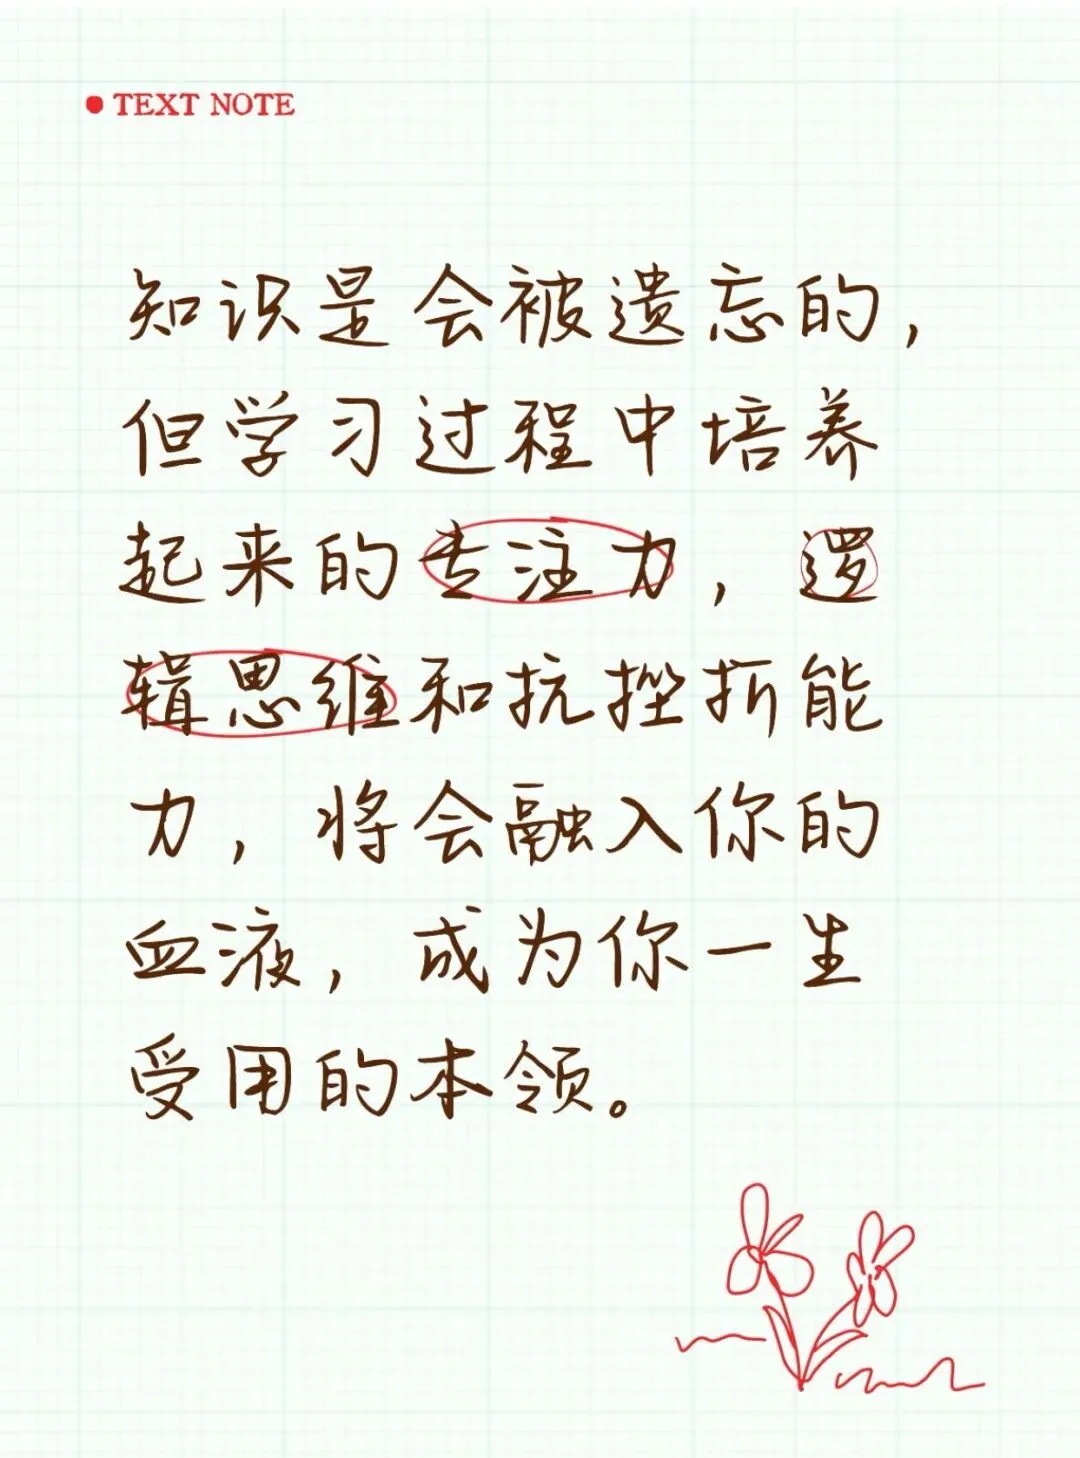 TEXT NOTE
知识是会被遗忘的,
但学习过程中培养
起来的专注力,逻
辑思维和抗挫折能
力,将会融入你的
血液,成为你一生
受用的本领。